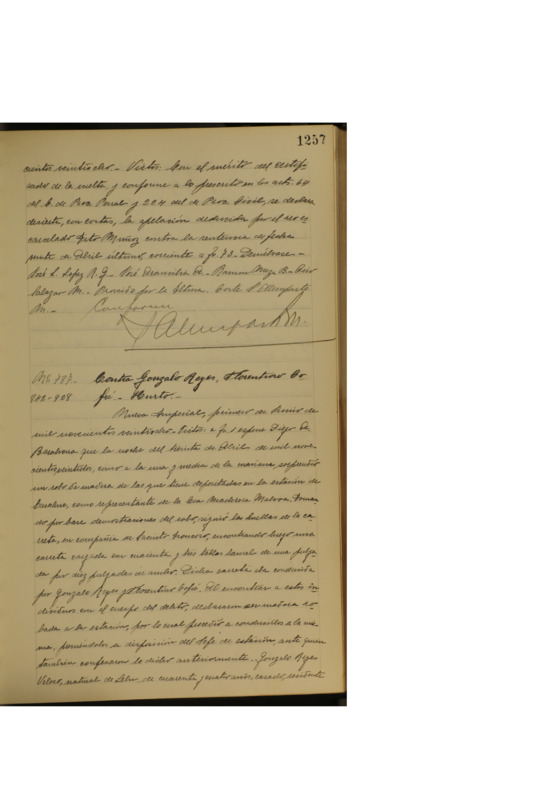 1257
cientos veintiocho.- Vistos: Con el mérito del certifi-
cado de la vuelta, y conforme a lo prescrito en los arts. 64
del C. de Proc. Penal y 224 del de Proc. Civil, se declara
desierta, con costas, la apelación deducida por el reo ex-
carcelado Tito Muñoz contra la sentencia de fecha
de Abril último, corriente a fs. 73.- Devuélvase.-
José L. López R. J.- José - Ramon Meza B.-
Salazar M.- Proveído por la Iltma. Corte
M.- Conforme
No. 787.- Contra Gonzalo Reyes, Florentino Co-
902-908 fré.- Hurto.-
Nueva Imperial, primero de Junio de
mil novecientos veintiocho.- Vistos: a fs. 1 expone Diego
Barahona que la noche del treinta de Abril de mil nove-
cientos veintidos, como a la una y media de la mañana, sorprendió
un robo de madera de las que tiene depositadas en la estación de
como representante de la Cía Maderera Malvoa. Toman-
do por base demostraciones del robo, siguió las huellas de la ca-
rreta, en compañía de encontrando luego una
carreta cargada con cincuenta y tres tablas laurel de una pulga-
da por diez pulgadas de ancho. Dicha carreta era conducida
por Gonzalo Reyes y Florentino Cofré. Al encontrar a estos in-
dividuos con el cuerpo del delito, declararon ser madera ro-
bada a la estación, por lo cual procedió a conducirlos a la mis-
ma, poniéndolos a disposición del Jefe de estación, ante quien
también confesaron lo dicho anteriormente.- Gonzalo Reyes
Veloso, natural de Lebu, de cuarenta y cuatro años, casado, residente